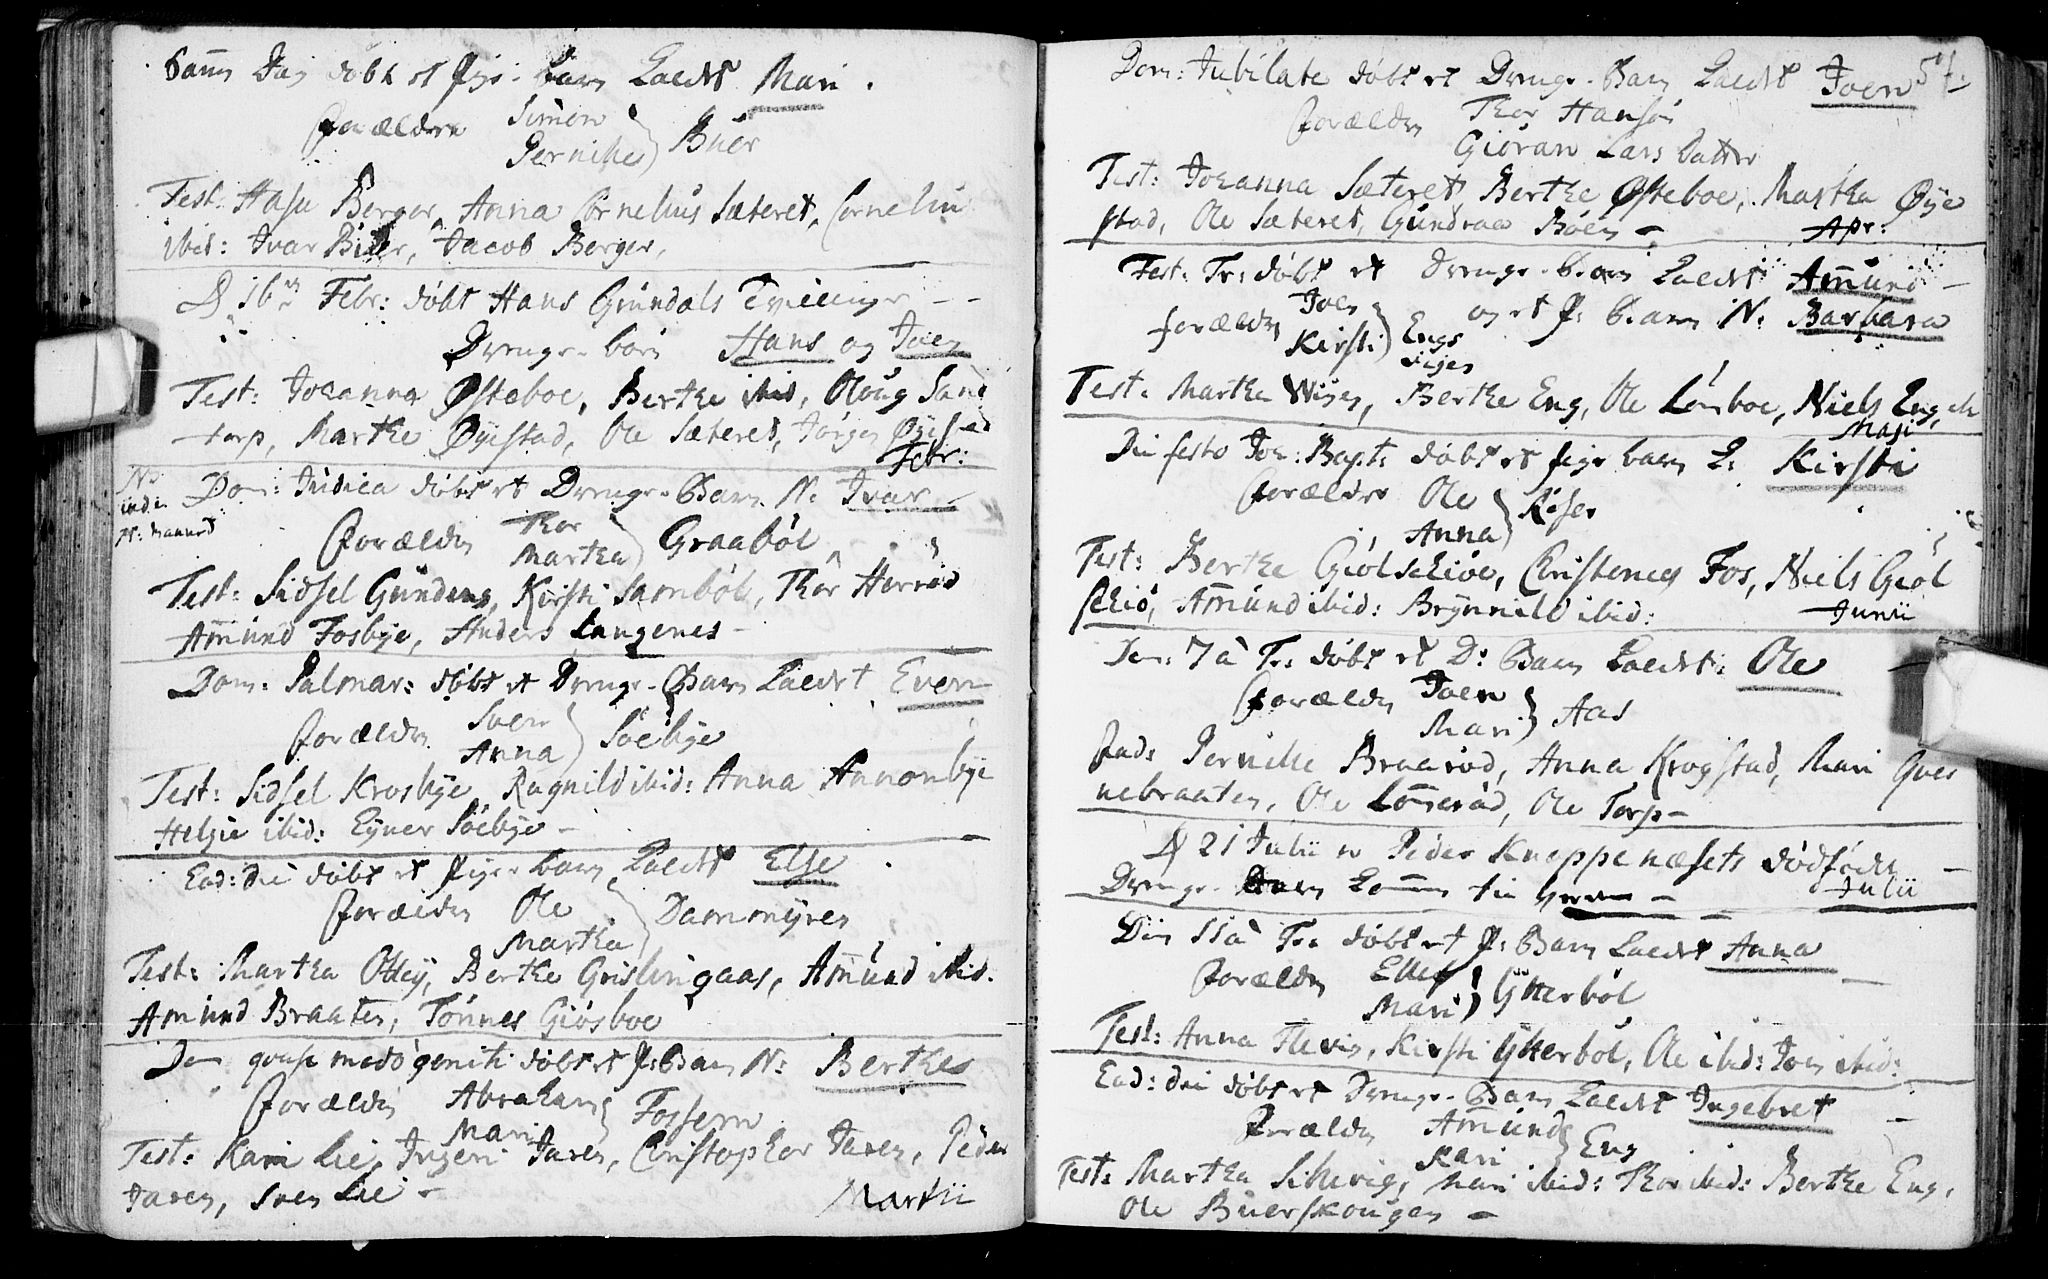 Samme Dag døbt et Pige-Barn kaldet Mari.
Forældre Simon
Pernille } Buer
Test: Berger, Anna Cornelius Sæteret, Cornelius
ibid: Ivar Buer, Jacob Berger,
D 16de Febr: døbt Hans Grundals Tvillinger --
Drenge-børn Hans og Joen
Test: Johanna Østeboe, Berthe ibid, Oloug Sand
torp, Marthe Øyestad, Ole Sæteret, Jørgen Øyestad
Febr:
Dom: Judica døbt et Drenge-Barn N: Ivar -
Forældre Thor
Martha } Graabøl
Test: Sidsel Gundeng, Kirsti Sambøl, Thor Herrød
Amund Fosbye, Anders Langenes -
Dom: Palmar: døbt et Drenge-Barn kaldet Even
Forældre Sven
Anna } Søebye
Test: Sidsel Krosbye, Ragnild ibid: Anna Annonbye
Helgie ibid: Eyner Søebye -
Ead: die døbt et Pige-barn kaldet Else
Forældre Ole
Martha } Dammyren
Test: Martha Ottey, Berthe Grislingaas, Amund ibid.
Amund Braaten, Tønnes Giøsboe
Dom qvasimodogeniti døbt et P: Barn N: Berthe
Forældre Abraham
Mari } Fossern
Test: Kari Lie, Ingeri Jaren, Christopher Jaren, Peder
Jaren, Sven Lie -
Martii
57.
Dom: Jubilate døbt et Drenge-Barn kaldet Joen
Forældre Thor Hansøn
Giøran Lars Datter
Test: Johanna Sæteret, Berthe Østeboe, Martha Øye
stad, Ole Sæteret, Gundroen Bøen -
Apr:
Fest: Tr: døbt et Drenge-Barn kaldet Amund -
og et P: Barn N: Barbara
Forældre Joen
Kirsti } Engs
viigen
Test: Martha Wigen, Berthe Eng, Ole Lønboe, Niels Eng,
Maji
Die festo Joh: Bapt: døbt et Pige barn k: Kirsti
Forældre Ole
Anna } Røser
Test: Berthe Giølschiøe, Christence Fos, Niels Giøl
schiø, Amund ibid: Brynnild ibid:
Junii
Dom: 7 à Tr: døbt et D: Barn kaldet: Ole
Forældre Joen
Mari } Aas
Fad: Pernille Braarød, Anna Krogstad, Mari Qves
nebraaten, Ole Lømerød, Ole Torp -
D 21 Julii er Peder Knappenæsets dødfødte
Drenge-Barn kommen til
Julii
Dom 11 à Tr: døbt et P: Barn kaldet Anna
Forældre Ellef
Mari } Ytterbøl
Test: Anna Flevin, Kirsti Ytterbøl, Ole ibid: Joen ibid:
Ead: die døbt et Drenge-Barn kaldet Ingebret
Forældre Amund
Kari } Eng
Test: Martha Schevig, Mari ibid: Thor ibid: Berthe Eng,
Ole Buerskougen -